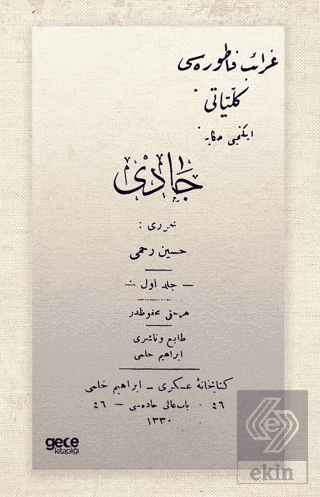 غرائب فاطوره‌سی
كلیّاتی
ایكنجی حكایه
جادی
محرری :
حسین رحمی
— جلد اول —
هر حقی محفوظدر
طابع و ناشری
ابراهیم حلمی
كتابخانهٔ عسكری – ابراهیم حلمی
٤٦ باب عالی جاده‌سی — ٤٦
١٣٣٠
gece
kitaplığı
e
ekin